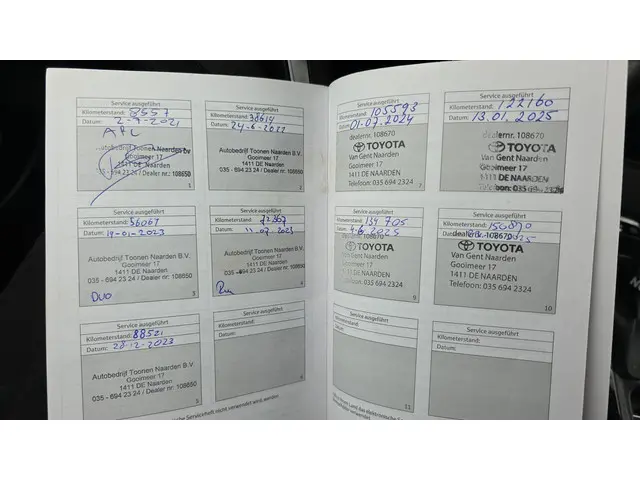 Service ausgeführt
Kilometerstand: 8557
Datum: 2-9-2021
APL
Autobedrijf Toonen Naarden bv
Gooimeer 17
1411 DE Naarden
035 - 694 23 24 / Dealer nr: 108650
1
Service ausgeführt
Kilometerstand: 38614
Datum: 24-6-2022
Autobedrijf Toonen Naarden B.V.
Gooimeer 17
1411 DE Naarden
035 - 694 23 24 / Dealer nr: 108650
2
Service ausgeführt
Kilometerstand: 56067
Datum: 19-01-2023
Autobedrijf Toonen Naarden B.V.
Gooimeer 17
1411 DE Naarden
035 - 694 23 24 / Dealer nr: 108650
DUO
3
Service ausgeführt
Kilometerstand: 72367
Datum: 11-07-2023
Autobedrijf Toonen Naarden B.V.
Gooimeer 17
1411 DE Naarden
035 - 694 23 24 / Dealer nr: 108650
4
Service ausgeführt
Kilometerstand: 88521
Datum: 20-12-2023
Autobedrijf Toonen Naarden B.V.
Gooimeer 17
1411 DE Naarden
035 - 694 23 24 / Dealer nr: 108650
5
Service ausgeführt
Kilometerstand:
Datum:
Serviceheft nicht verwendet wird, werden
Service ausgeführt
Kilometerstand: 105593
Datum: 01-07-2024
dealernr. 108670
TOYOTA
Van Gent Naarden
Gooimeer 17
1411 DE NAARDEN
Telefoon: 035 694 2324
7
Service ausgeführt
Kilometerstand: 122160
Datum: 13.01.2025
dealernr. 108670
TOYOTA
Van Gent Naarden
Gooimeer 17
1411 DE NAARDEN
Telefoon: 035 69
Service ausgeführt
Kilometerstand: 134 705
Datum: 4-6-2025
TOYOTA
Van Gent Naarden
Gooimeer 17
1411 DE NAARDEN
Telefoon: 035 694 2324
9
Service ausgeführt
Kilometerstand: 150870
Datum:
dealernr. 108670
TOYOTA
Van Gent Naarden
Gooimeer 17
1411 DE NAARDEN
Telefoon: 035 694 2324
10
Service ausgeführt
Kilometerstand:
Datum:
11
Service ausgeführt
Kilometerstand:
Datum: